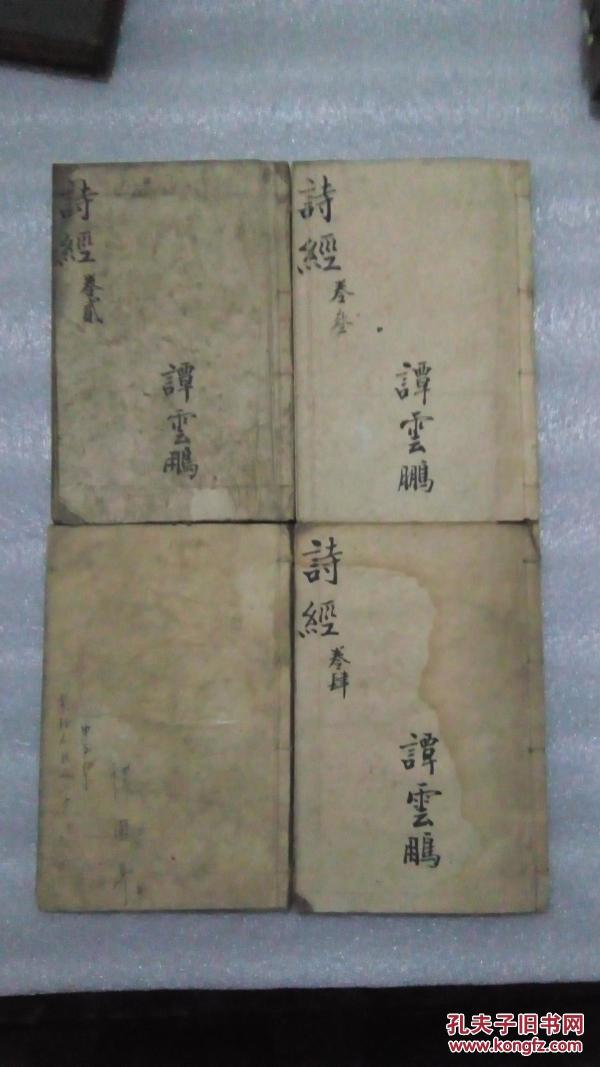 詩經
卷貳
譚雲鵬
詩經
卷叁
譚雲鵬
詩經
卷肆
譚雲鵬
孔夫子旧书网
www.kongfz.com